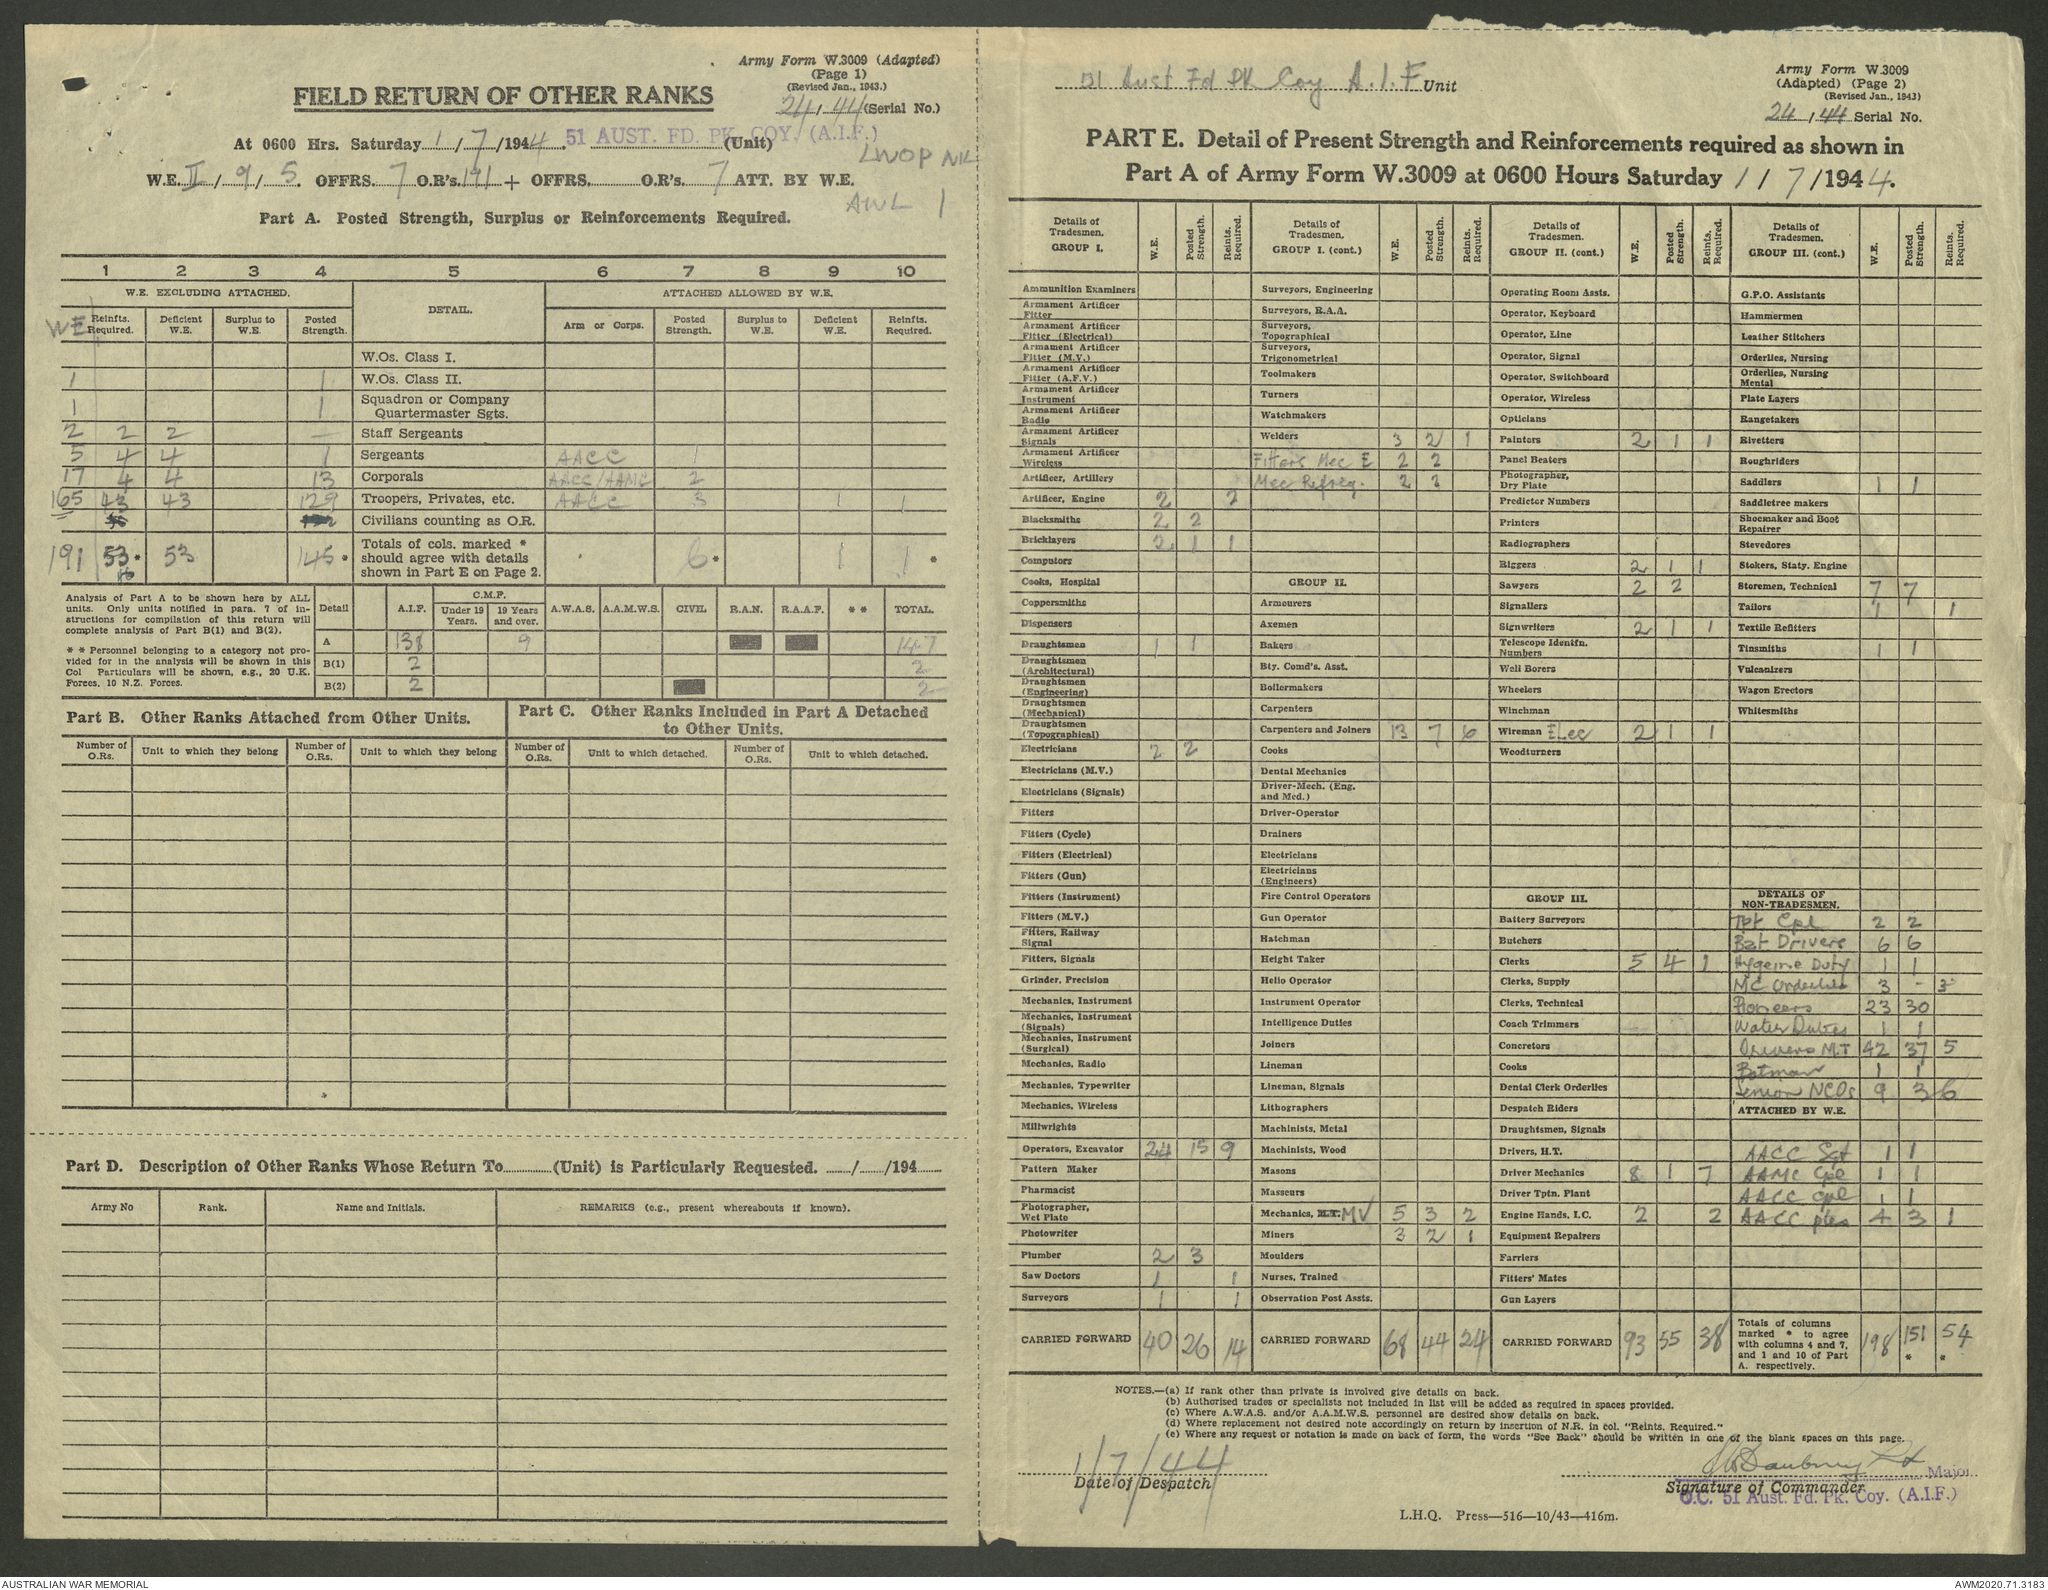 Army Form W.3009 (Adapted)
(Page 1)
(Revised Jan., 1943.)
24/44 (Serial No.)
FIELD RETURN OF OTHER RANKS
At 0600 Hrs. Saturday 1/7/1944 51 AUST. FD. PK. COY. (A.I.F.) (Unit)
LWOP NIL
W.E. II/9/5. OFFRS. 7 O.R's. 191 + OFFRS. O.R's. 7 ATT. BY W.E.
AWL 1
Part A. Posted Strength, Surplus or Reinforcements Required.
1 2 3 4 5 6 7 8 9 10
W.E. EXCLUDING ATTACHED. DETAIL. ATTACHED ALLOWED BY W.E.
WE Reinfts. Required. Deficient W.E. Surplus to W.E. Posted Strength. Arm or Corps. Posted Strength. Surplus to W.E. Deficient W.E. Reinfts. Required.
W.Os. Class I.
1 1 W.Os. Class II.
1 1 Squadron or Company Quartermaster Sgts.
2 2 2 — Staff Sergeants
5 4 4 1 Sergeants AACC 1
17 4 4 13 Corporals AACC/AAMC 2
165 43 43 129 Troopers, Privates, etc. AACC 3 1 1
Civilians counting as O.R.
191 53* 53 145* Totals of cols. marked * should agree with details shown in Part E on Page 2. 6* 1 1*
Analysis of Part A to be shown here by ALL units. Only units notified in para. 7 of instructions for compilation of this return will complete analysis of Part B(1) and B(2).
* * Personnel belonging to a category not provided for in the analysis will be shown in this Col Particulars will be shown, e.g., 20 U.K. Forces, 10 N.Z. Forces.
Detail A.I.F. C.M.F. Under 19 Years. 19 Years and over. A.W.A.S. A.A.M.W.S. CIVIL R.A.N. R.A.A.F. * * TOTAL.
A 138 9 147
B(1) 2 2
B(2) 2 2
Part B. Other Ranks Attached from Other Units.
Part C. Other Ranks Included in Part A Detached to Other Units.
Number of O.Rs. Unit to which they belong Number of O.Rs. Unit to which they belong Number of O.Rs. Unit to which detached. Number of O.Rs. Unit to which detached.
Part D. Description of Other Ranks Whose Return To (Unit) is Particularly Requested. / /194
Army No Rank. Name and Initials. REMARKS (e.g., present whereabouts if known).
51 Aust Fd Pk Coy A.I.F Unit
Army Form W.3009
(Adapted) (Page 2)
(Revised Jan., 1943)
24/44 Serial No.
PART E. Detail of Present Strength and Reinforcements required as shown in
Part A of Army Form W.3009 at 0600 Hours Saturday 1/7/1944.
Details of Tradesmen. GROUP I. W.E. Posted Strength. Reints. Required.
Ammunition Examiners
Armament Artificer Fitter
Armament Artificer Fitter (Electrical)
Armament Artificer Fitter (M.V.)
Armament Artificer Fitter (A.F.V.)
Armament Artificer Instrument
Armament Artificer Radio
Armament Artificer Signals
Armament Artificer Wireless
Artificer, Artillery
Artificer, Engine 2 2
Blacksmiths 2 2
Bricklayers 2 1 1
Computors
Cooks, Hospital
Coppersmiths
Dispensers
Draughtsmen 1 1
Draughtsmen (Architectural)
Draughtsmen (Engineering)
Draughtsmen (Mechanical)
Draughtsmen (Topographical)
Electricians 2 2
Electricians (M.V.)
Electricians (Signals)
Fitters
Fitters (Cycle)
Fitters (Electrical)
Fitters (Gun)
Fitters (Instrument)
Fitters (M.V.)
Fitters, Railway Signal
Fitters, Signals
Grinder, Precision
Mechanics, Instrument
Mechanics, Instrument (Signals)
Mechanics, Instrument (Surgical)
Mechanics, Radio
Mechanics, Typewriter
Mechanics, Wireless
Millwrights
Operators, Excavator 24 15 9
Pattern Maker
Pharmacist
Photographer, Wet Plate
Photowriter
Plumber 2 3
Saw Doctors 1 1
Surveyors 1 1
CARRIED FORWARD 40 26 14
Details of Tradesmen. GROUP I. (cont.) W.E. Posted Strength. Reints. Required.
Surveyors, Engineering
Surveyors, R.A.A.
Surveyors, Topographical
Surveyors, Trigonometrical
Toolmakers
Turners
Watchmakers
Welders 3 2 1
Fitters Mec E 2 2
Mec Refreg. 2 2
GROUP II.
Armourers
Axemen
Bakers
Bty. Comd's. Asst.
Boilermakers
Carpenters
Carpenters and Joiners 13 7 6
Cooks
Dental Mechanics
Driver-Mech. (Eng. and Med.)
Driver-Operator
Drainers
Electricians
Electricians (Engineers)
Fire Control Operators
Gun Operator
Hatchman
Height Taker
Helio Operator
Instrument Operator
Intelligence Duties
Joiners
Lineman
Lineman, Signals
Lithographers
Machinists, Metal
Machinists, Wood
Masons
Masseurs
Mechanics, M.T. MV 5 3 2
Miners 3 2 1
Moulders
Nurses, Trained
Observation Post Assts.
CARRIED FORWARD 68 44 24
Details of Tradesmen. GROUP II. (cont.) W.E. Posted Strength. Reints. Required.
Operating Room Assts.
Operator, Keyboard
Operator, Line
Operator, Signal
Operator, Switchboard
Operator, Wireless
Opticians
Painters 2 1 1
Panel Beaters
Photographer, Dry Plate
Predictor Numbers
Printers
Radiographers
Riggers 2 1 1
Sawyers 2 2
Signallers
Signwriters 2 1 1
Telescope Identfn. Numbers
Well Borers
Wheelers
Winchman
Wireman Elec 2 1 1
Woodturners
GROUP III.
Battery Surveyors
Butchers
Clerks 5 4 1
Clerks, Supply
Clerks, Technical
Coach Trimmers
Concretors
Cooks
Dental Clerk Orderlies
Despatch Riders
Draughtsmen, Signals
Drivers, H.T.
Driver Mechanics 8 1 7
Driver Tptn. Plant
Engine Hands, I.C. 2 2
Equipment Repairers
Farriers
Fitters' Mates
Gun Layers
CARRIED FORWARD 93 55 38
Details of Tradesmen. GROUP III. (cont.) W.E. Posted Strength. Reints. Required.
G.P.O. Assistants
Hammermen
Leather Stitchers
Orderlies, Nursing
Orderlies, Nursing Mental
Plate Layers
Rangetakers
Rivetters
Roughriders
Saddlers 1 1
Saddletree makers
Shoemaker and Boot Repairer
Stevedores
Stokers, Staty. Engine
Storemen, Technical 7 7
Tailors 1 1
Textile Refitters
Tinsmiths 1 1
Vulcanizers
Wagon Erectors
Whitesmiths
DETAILS OF NON-TRADESMEN.
Tpt Cpl 2 2
Bat Drivers 6 6
Hygeine Duty 1 1
MC Orderlies 3 - 3
Pioneers 23 30
Water Duties 1 1
Drivers M.T 42 37 5
Batman 1 1
Senior NCOs 9 3 6
ATTACHED BY W.E.
AACC Sgt 1 1
AAMC Cpl 1 1
AACC Cpl 1 1
AACC ptes 4 3 1
Totals of columns marked * to agree with columns 4 and 7, and 1 and 10 of Part A. respectively. 198 151* 54*
NOTES.—(a) If rank other than private is involved give details on back.
(b) Authorised trades or specialists not included in list will be added as required in spaces provided.
(c) Where A.W.A.S. and/or A.A.M.W.S. personnel are desired show details on back.
(d) Where replacement not desired note accordingly on return by insertion of N.R. in col. "Reints. Required."
(e) Where any request or notation is made on back of form, the words "See Back" should be written in one of the blank spaces on this page.
1/7/44
Date of Despatch
Major
Signature of Commander
O.C. 51 Aust. Fd. Pk. Coy. (A.I.F.)
L.H.Q. Press—516—10/43—416m.
AUSTRALIAN WAR MEMORIAL
AWM2020.71.3183